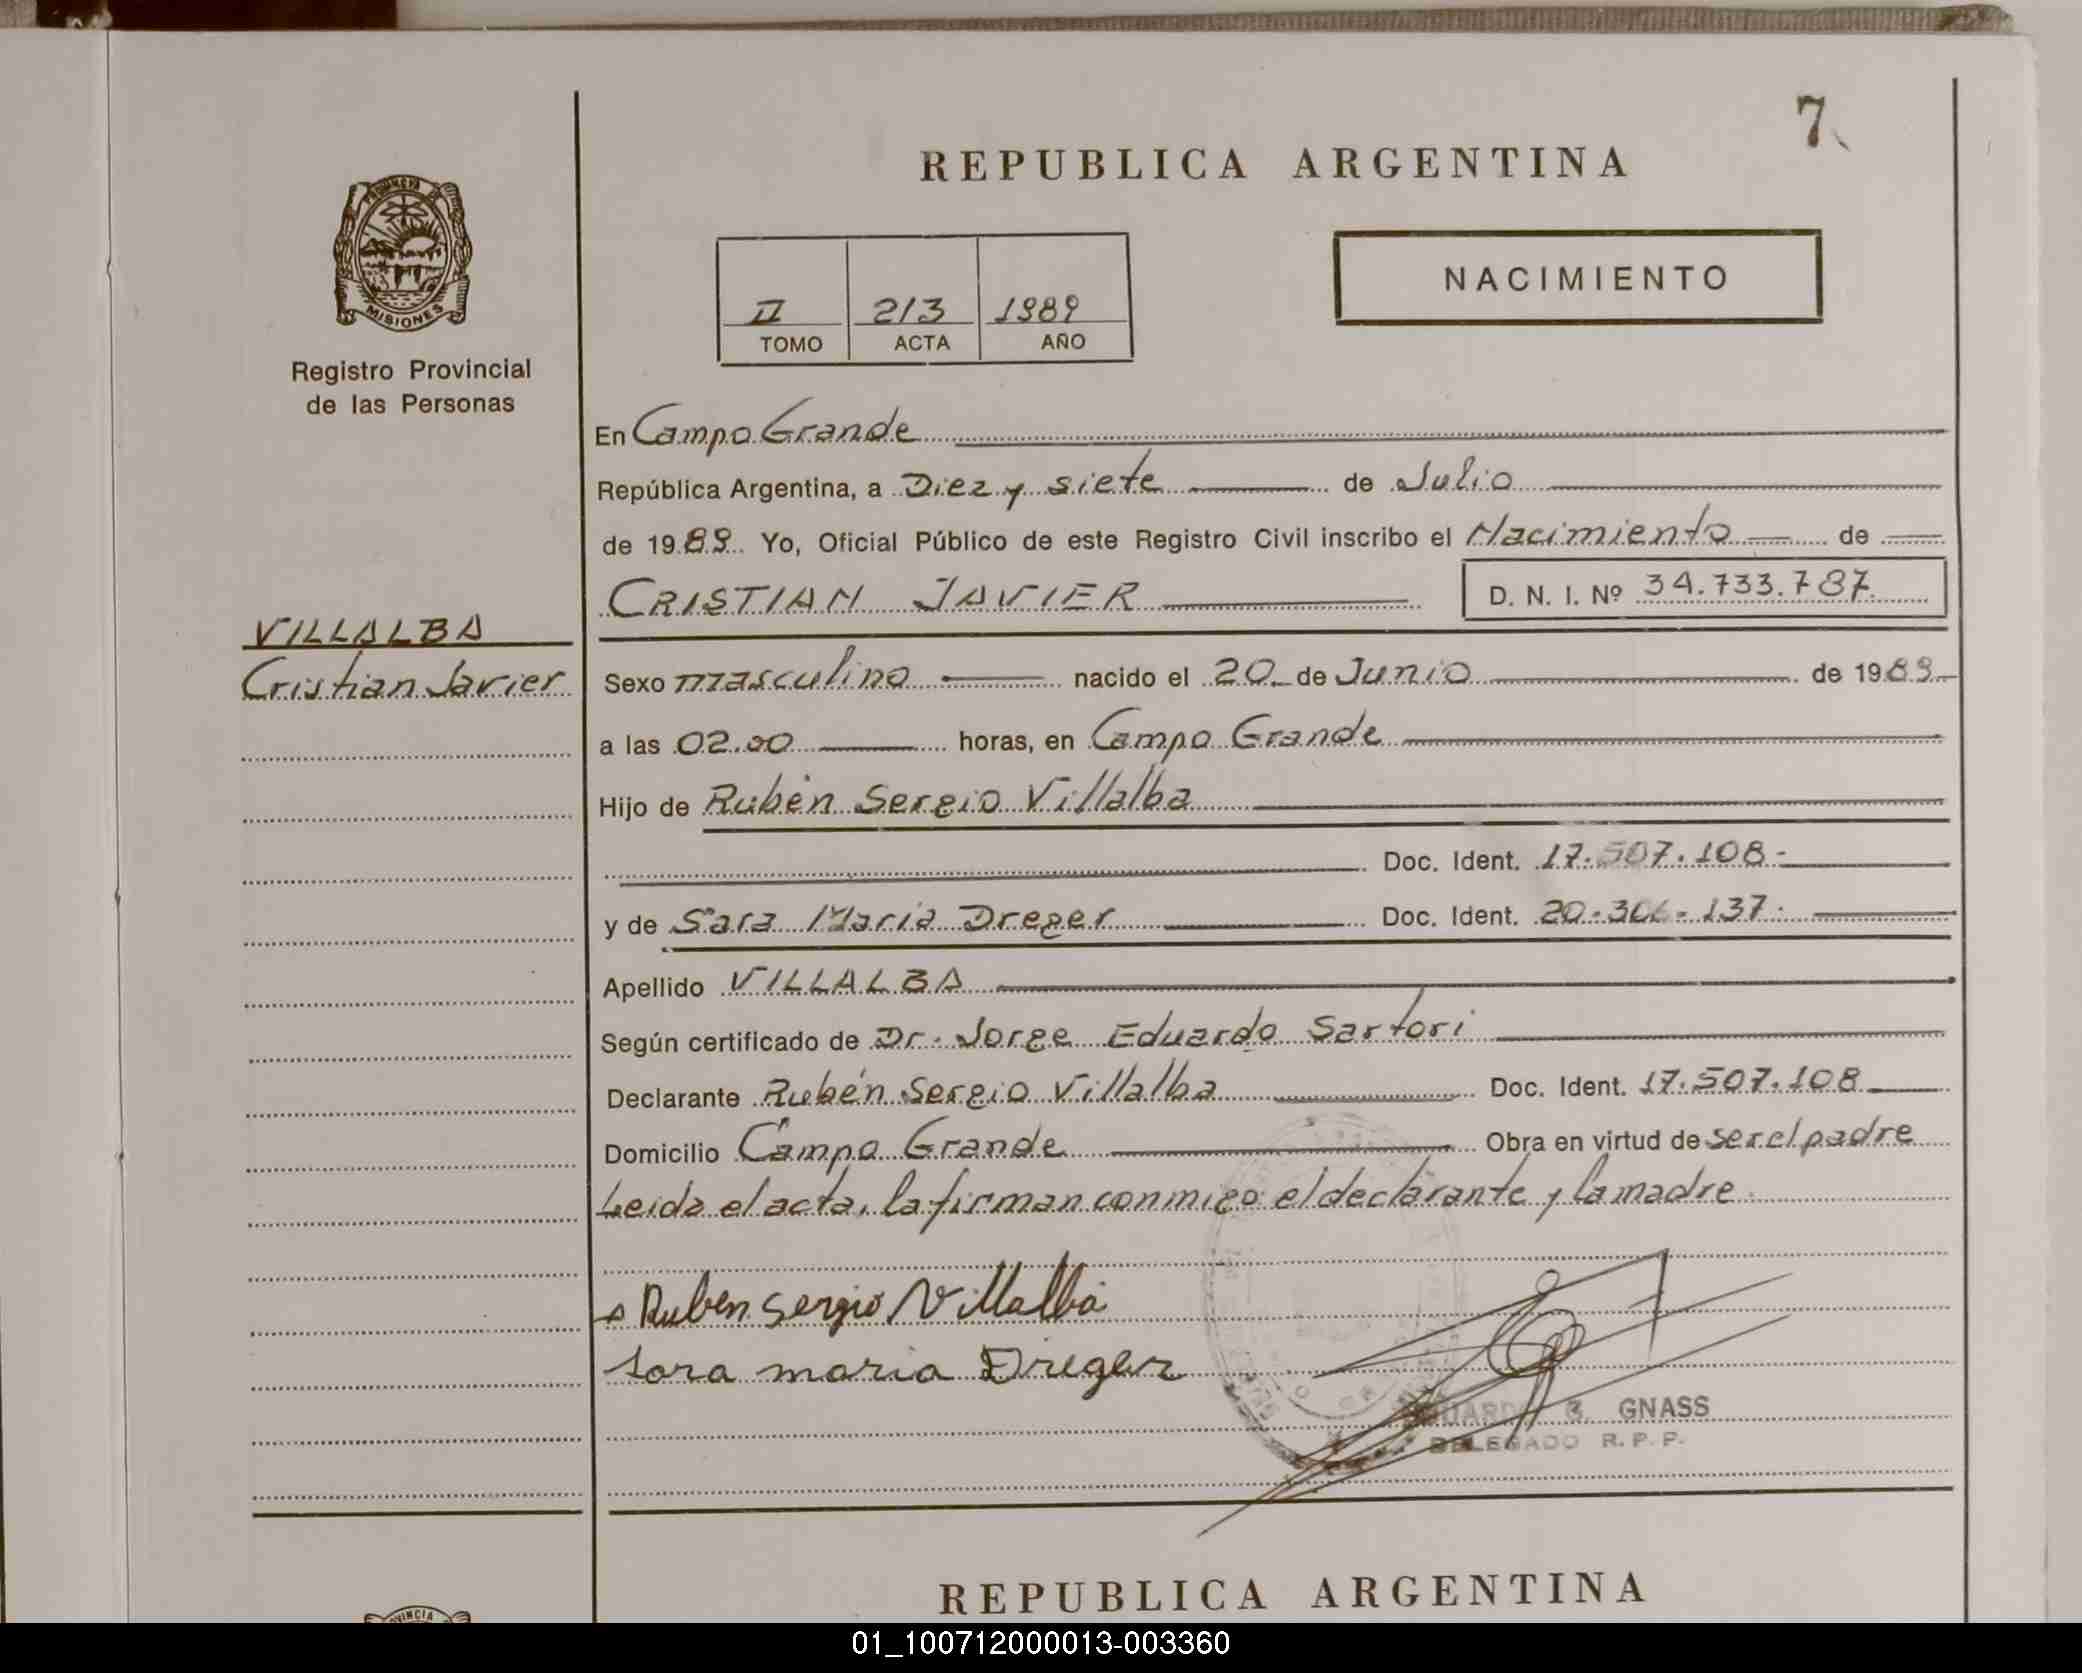 7
REPUBLICA ARGENTINA
PROVINCIA DE
MISIONES
NACIMIENTO
II 213 1989
TOMO ACTA AÑO
Registro Provincial
de las Personas
En Campo Grande
República Argentina, a Diez y siete de Julio
de 1989. Yo, Oficial Público de este Registro Civil inscribo el Nacimiento de
CRISTIAN JAVIER D. N. I. Nº 34.733.787
VILLALBA
Cristian Javier
Sexo masculino nacido el 20 de Junio de 1989
a las 02.00 horas, en Campo Grande
Hijo de Rubén Sergio Villalba
Doc. Ident. 17.507.108-
y de Sara Maria Dreger Doc. Ident. 20.306.137.
Apellido VILLALBA
Según certificado de Dr. Jorge Eduardo Sartori
Declarante Rubén Sergio Villalba Doc. Ident. 17.507.108
Domicilio Campo Grande Obra en virtud de ser el padre
Leida el acta, la firman conmigo el declarante y la madre.
Ruben Sergio Villalba
Sara maria Dreger
GNASS
DELEGADO R. P. P.
REPUBLICA ARGENTINA
01_100712000013-003360